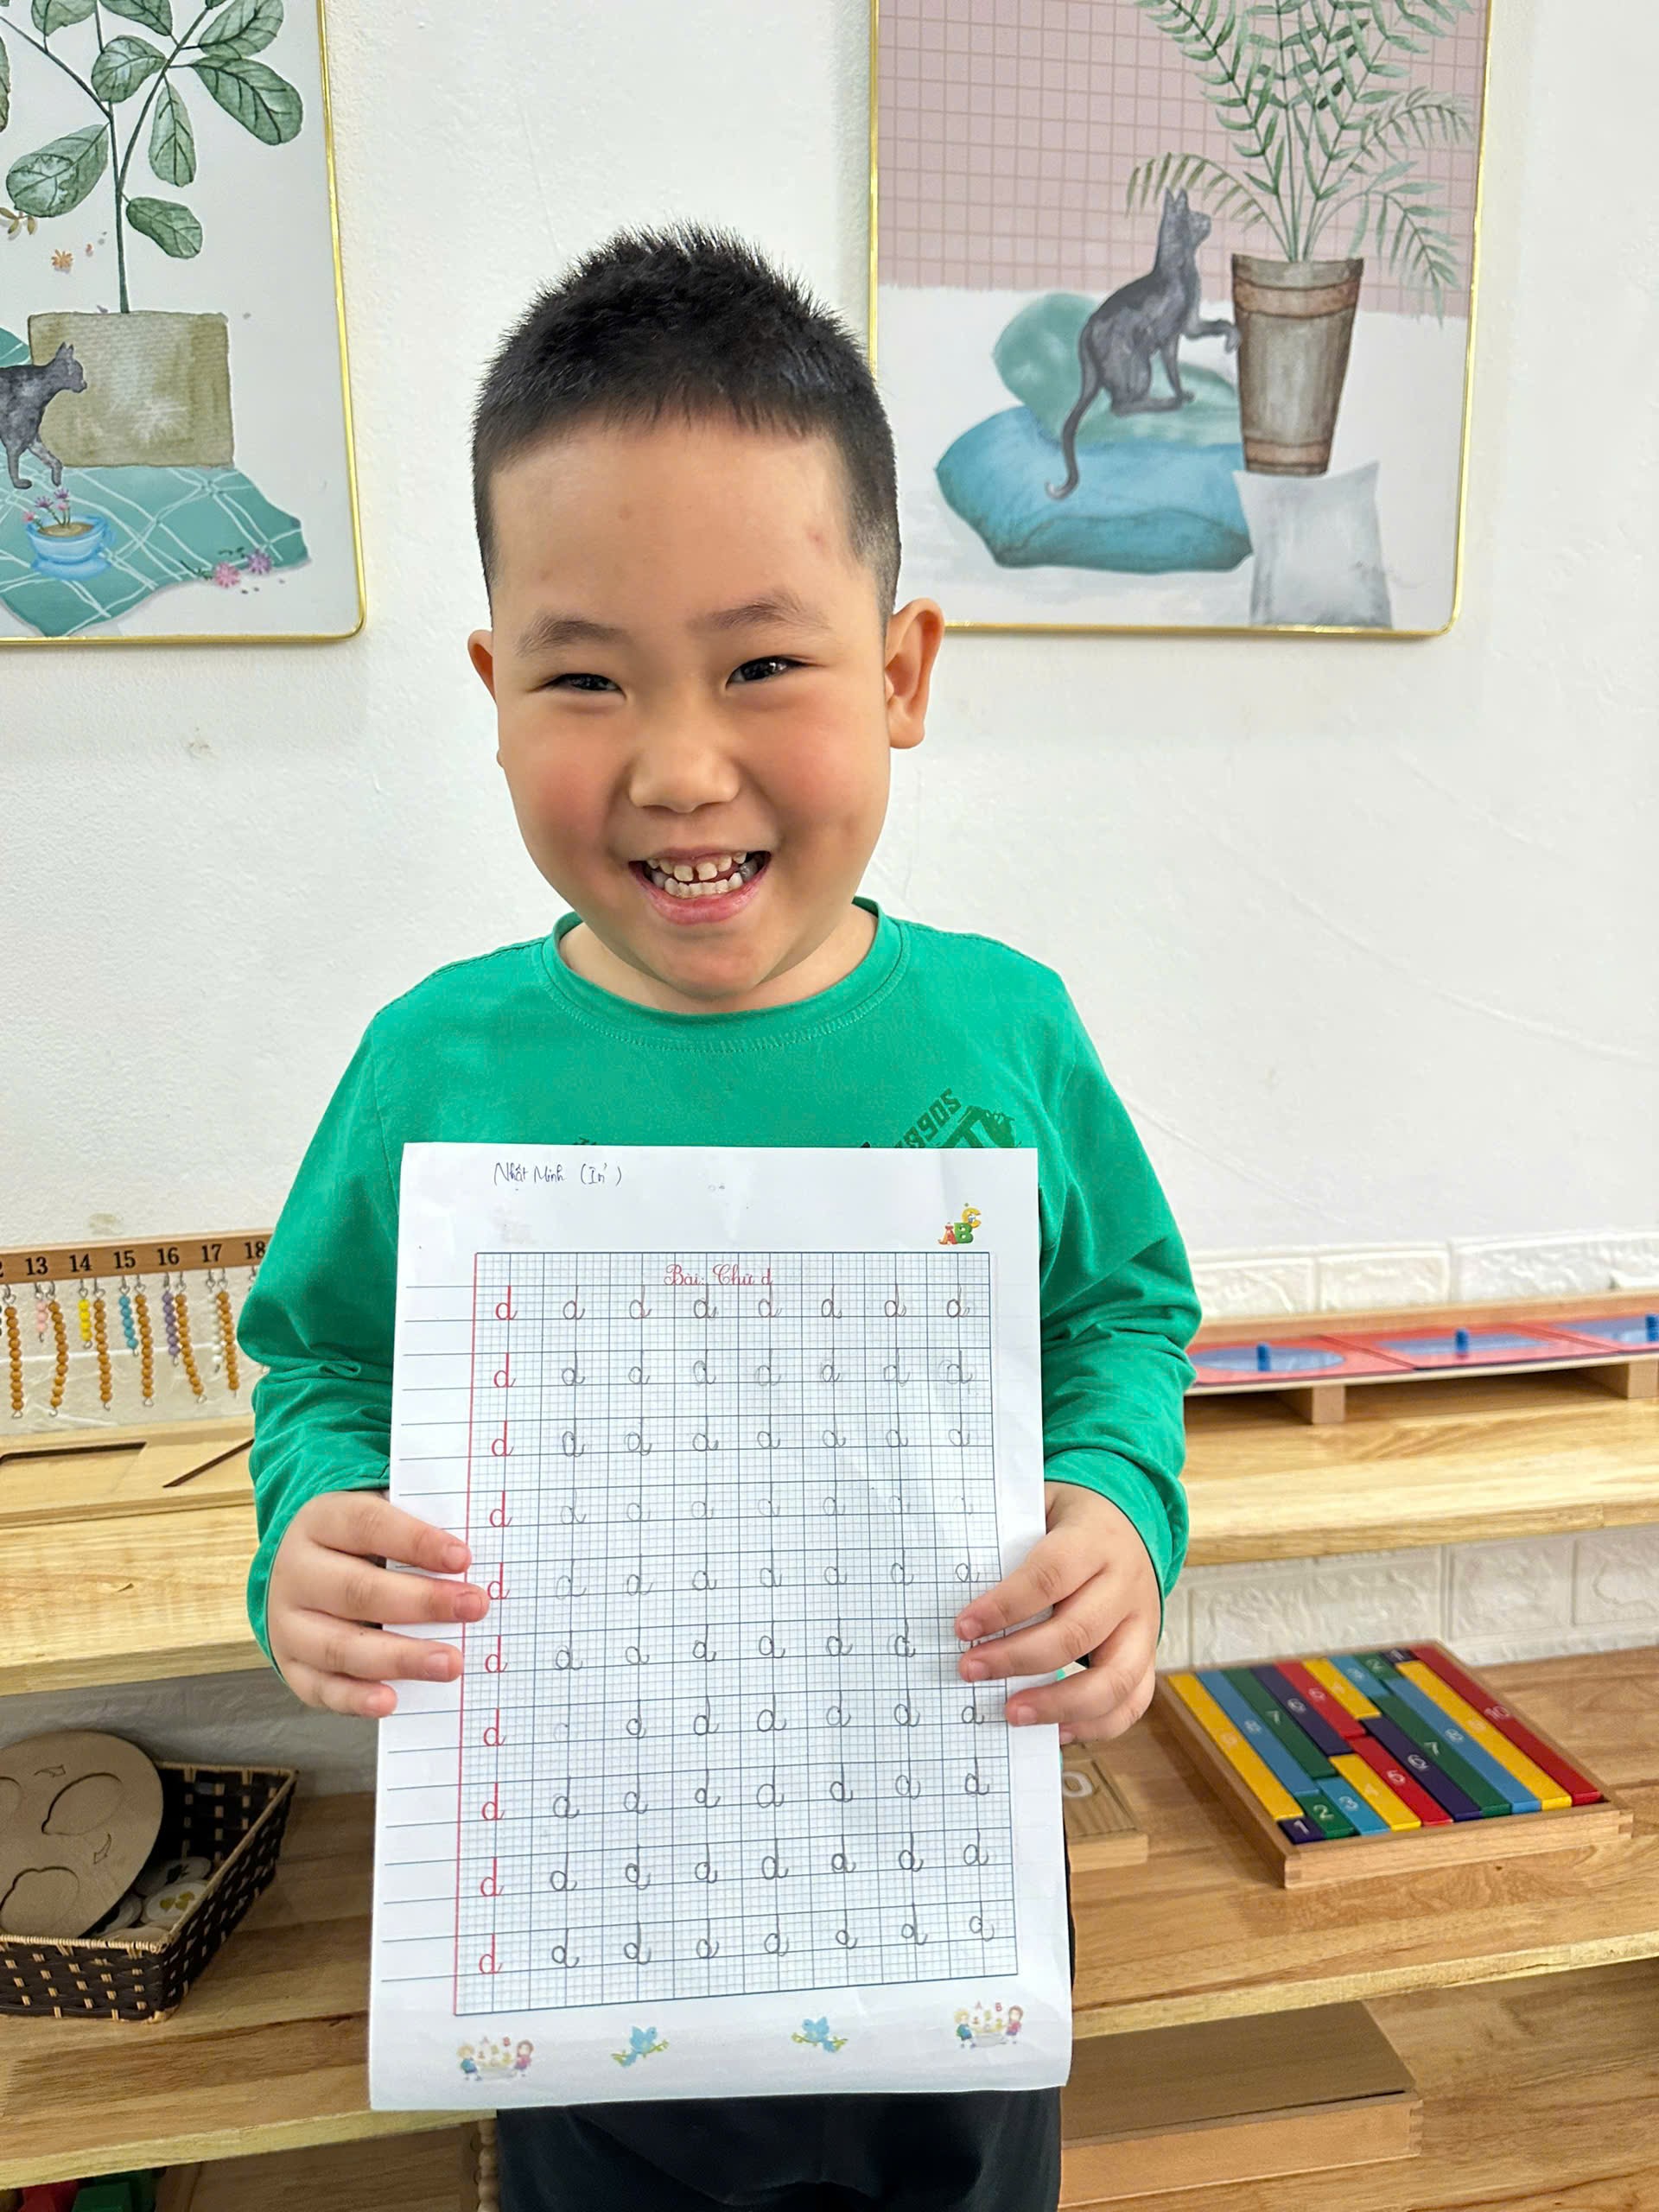 Nhật Minh (In)
ABC
Bài: Chữ d
d d d d d d d d
d d d d d d d d
d d d d d d d d
d d d d d d d
d d d d d d d d
d d d d d d d
d d d d d d d
d d d d d d d d
d d d d d d d d
d d d d d d d d
13 14 15 16 17 18